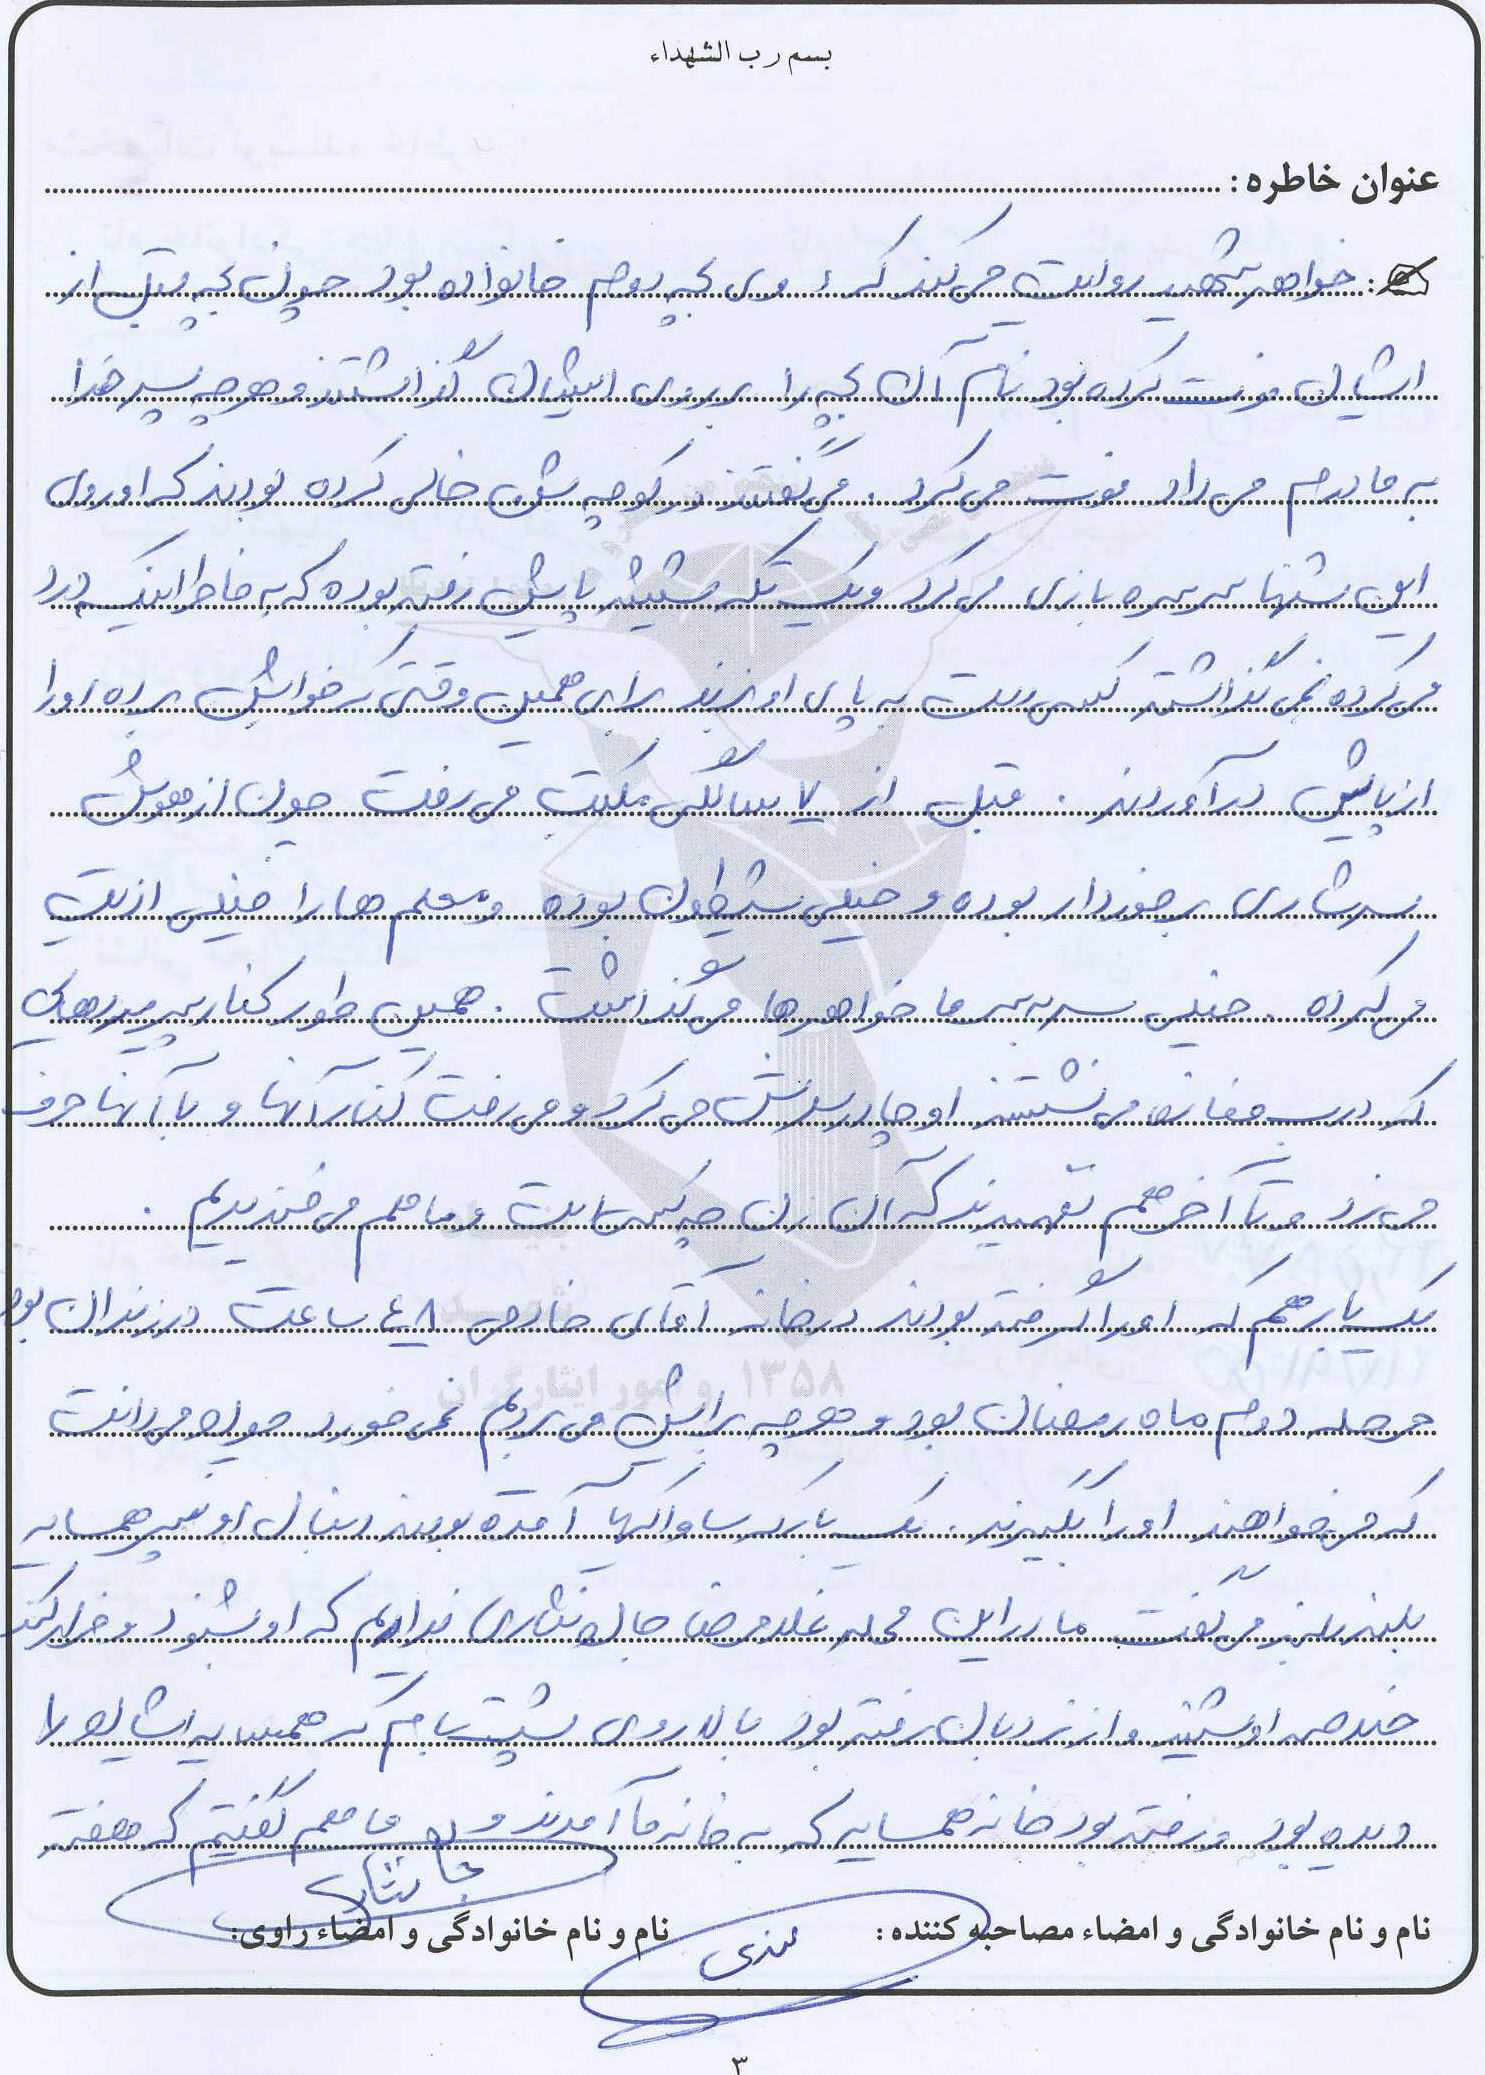 بسم رب الشهداء
عنوان خاطره :
خواهر شهید روایت می کند که : وی بچه دوم خانواده بود چون بچه قبل از
ایشان فوت کرده بود نام آن بچه را بر روی ایشان گذاشتند و هرچه پسر خدا
به مادرم می داد فوت می کرد . می گفتند در کوچه شن خالی کرده بودند که او روی
این شنها سرسره بازی می کرد و یک تکه شیشه پایش رفته بوده که به خاطر اینکه درد
می کرده نمی گذاشته کسی دست به پای او بزند برای همین وقتی که خوابش برده او را
از پایش درآوردند . قبل از ۷ سالگی مکتب می رفت چون از هوش
سرشاری برخوردار بوده و خیلی شیطون بوده و معلم ها را خیلی اذیت
می کرده . خیلی سر به سر ما خواهرها می گذاشت . همین طور کنار پیرمردهای
که درب مغازه می نشستند او چادر سرش می کرد و می رفت کنار آنها و با آنها حرف
می زد و تا آخر هم نفهمیدند که آن زن چه کسی است و ما هم می خندیدیم .
یک بار هم که او را گرفته بودند در خانه آقای خادمی ۴۸ ساعت در زندان بود
مرحله دوم ماه رمضان بود و هرچه برایش می بردیم نمی خورد چون می دانست
که می خواهند او را بگیرند . یک بار که ساواکیها آمده بودند دنبال او پسر همسایه
بلند بلند می گفت ما در این محله غلامرضا جان نثاری نداریم که او بشنود و فرار کند
خلاصه او شنید و از نردبان رفته بود بالا روی پشت بام که همسایه ایشان را
دیده بود و رفته بود خانه همسایه که به خانه ما آمدند و ما هم گفتیم که هفته
نام و نام خانوادگی و امضاء مصاحبه کننده :
نام و نام خانوادگی و امضاء راوی :
جان نثاری
۱۳۵۸
و امور ایثارگران
۳